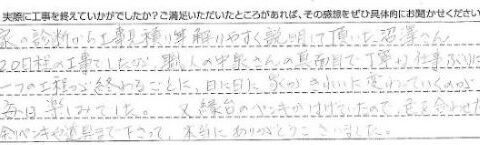 実際に工事を終えていかがでしたか？ご満足いただいたところがあれば、その感想をぜひ具体的にお聞かせください
家の診断から工事見積り等解りやすく説明して頂いた沼澤さん
20日程の工事でしたが、職人の中泉さんの真面目で丁寧な仕事ぶりに
一つの工程が終わるごとに、日に日に家がきれいに変わっていくのが
毎日楽しみでした。 又縁台のペンキがはげていたので、色を合わせた
余ペンキや道具まで下さって、本当にありがとうございました。